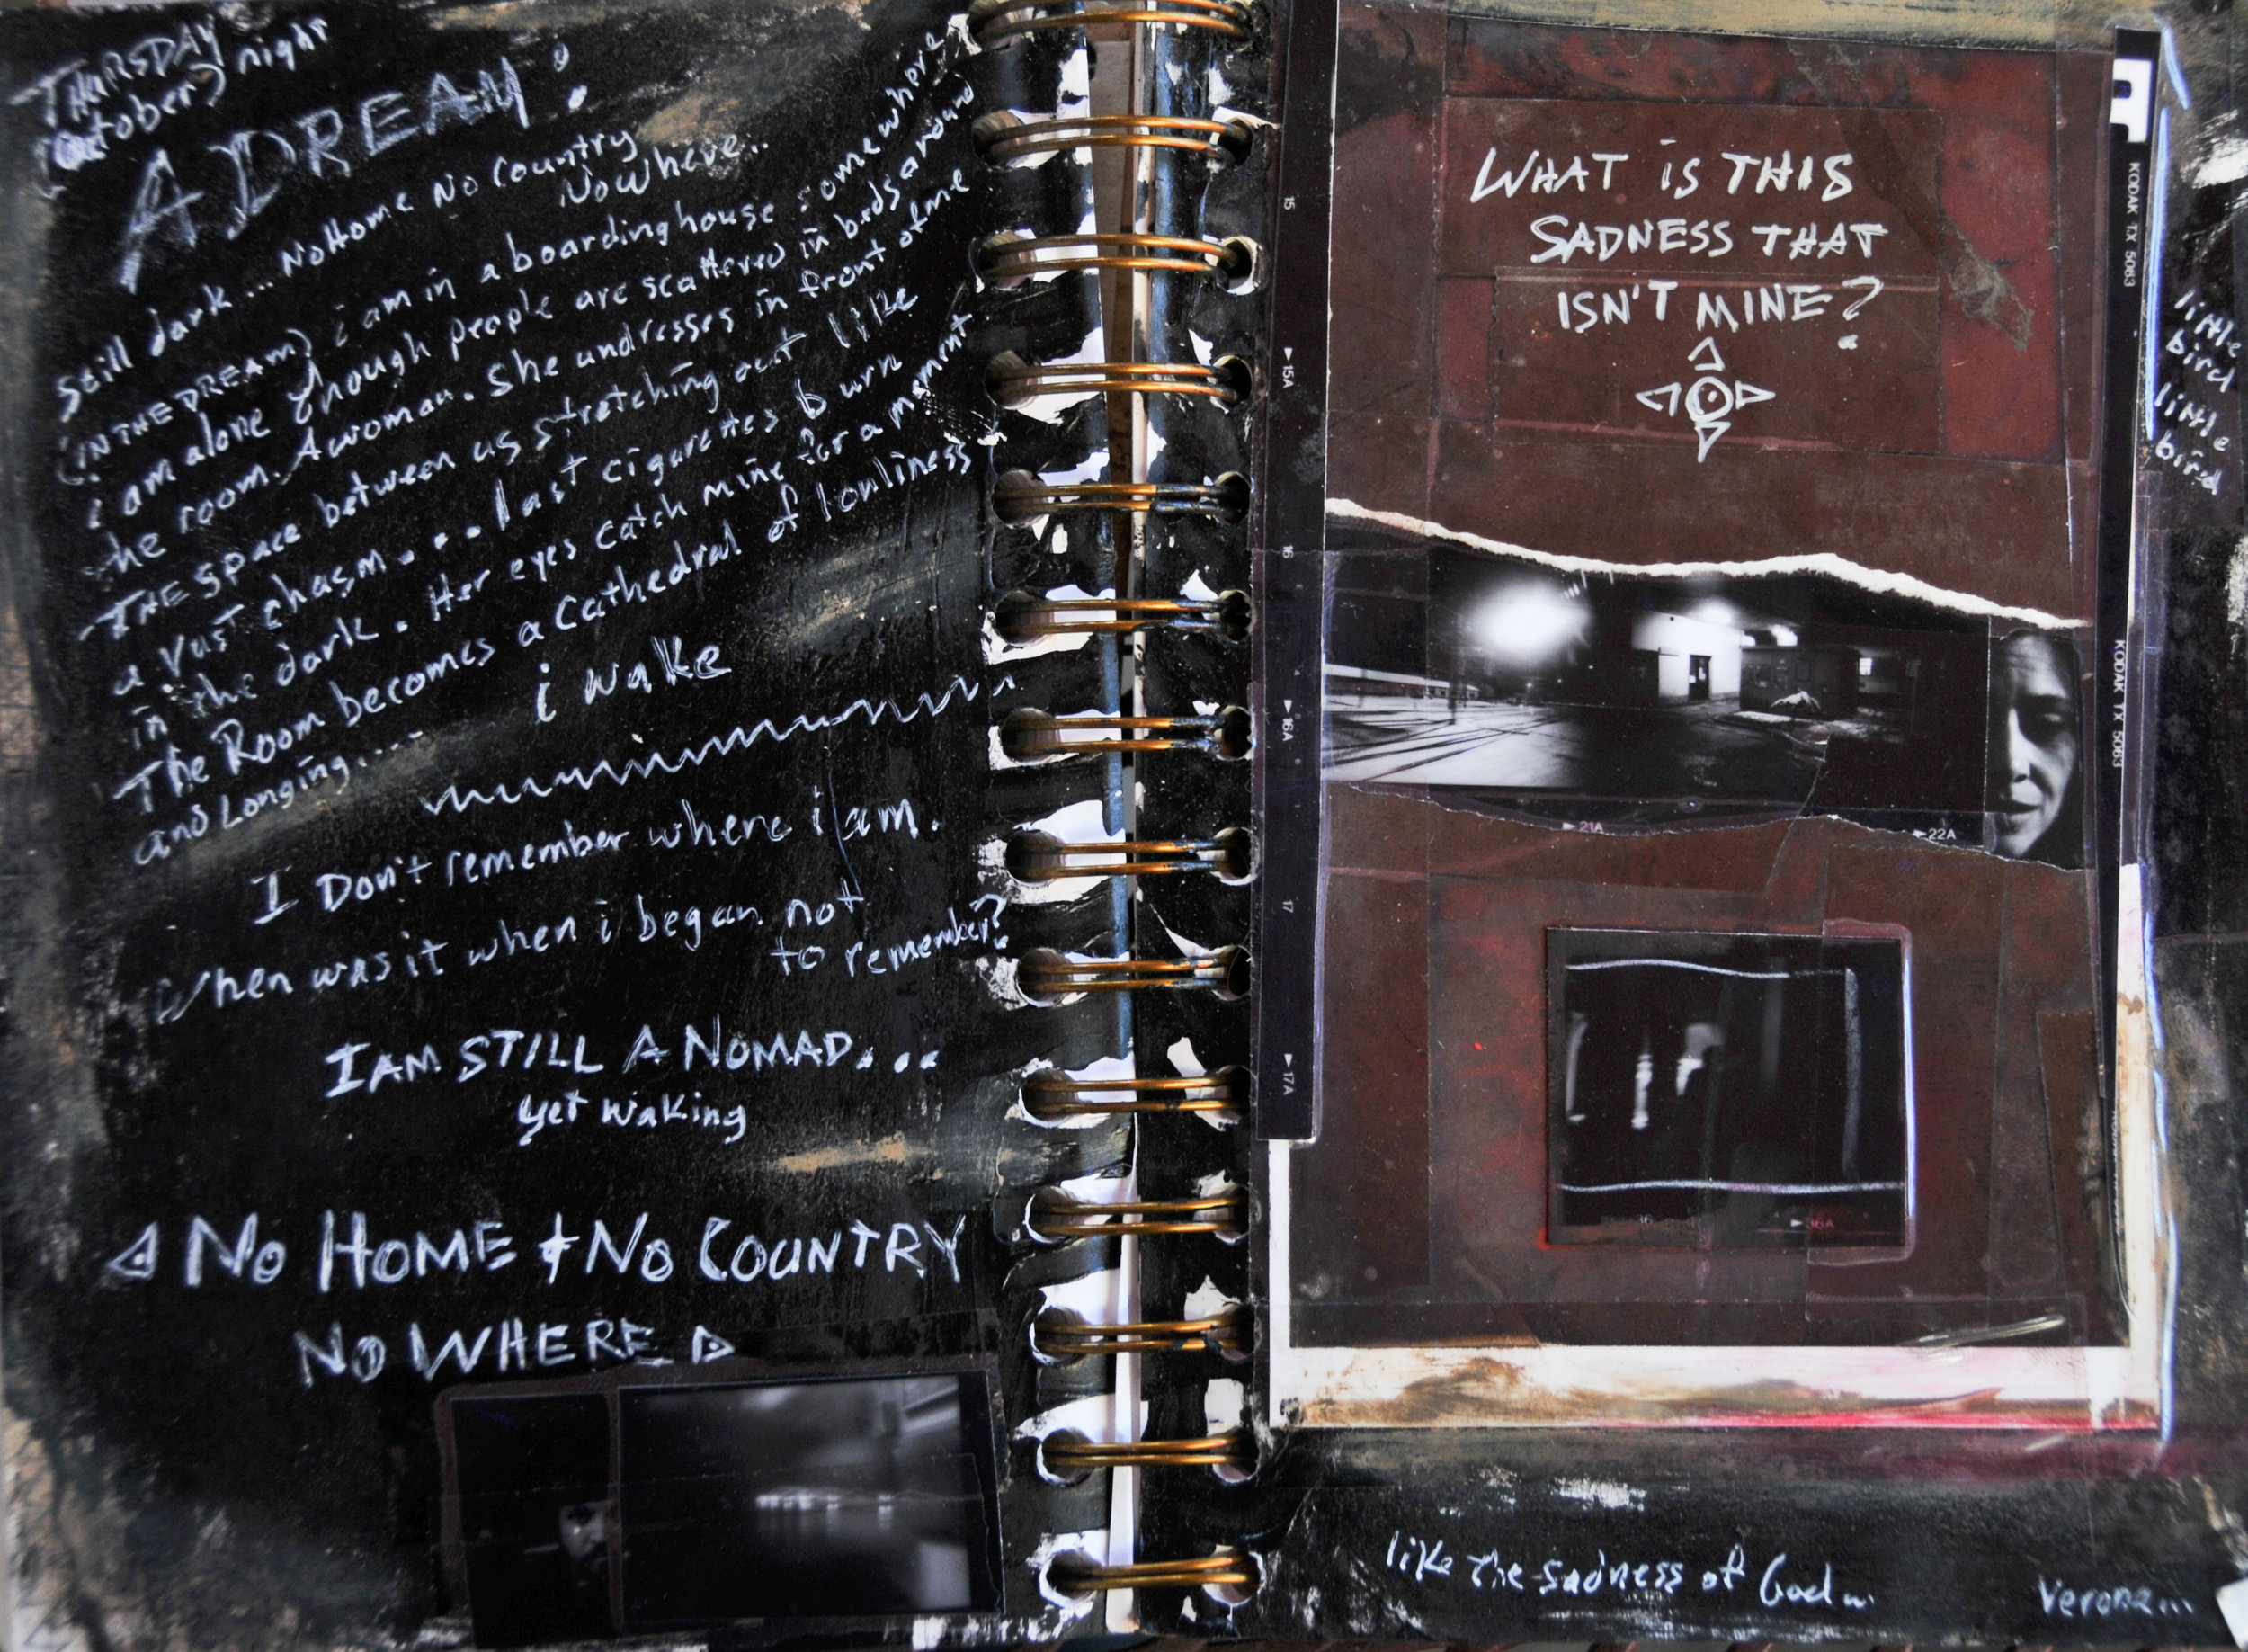 THURSDAY
October night
A DREAM:
still dark... No Home No Country
NoWhere..
(IN THE DREAM) i am in a boarding house somewhere
i am alone though people are scattered in beds around
the room. A woman. She undresses in front of me
THE space between us stretching out like
a vast chasm.... last cigarettes burn
in the dark. Her eyes catch mine for a moment
The Room becomes a cathedral of lonliness
and Longing....
i wake
I Don't remember where i am.
When was it when i began not
to remember?
I AM STILL A NOMAD...
yet waking
No HOME + No COUNTRY
No WHERE
WHAT iS THIS
SADNESS THAT
ISN'T MINE?
little
bird
little
bird
like the sadness of God...
Verona...
15
▶15A
16
▶16A
17
▶17A
KODAK TX 5063
KODAK TX 5063
▶21A
▶22A
36
▶36A